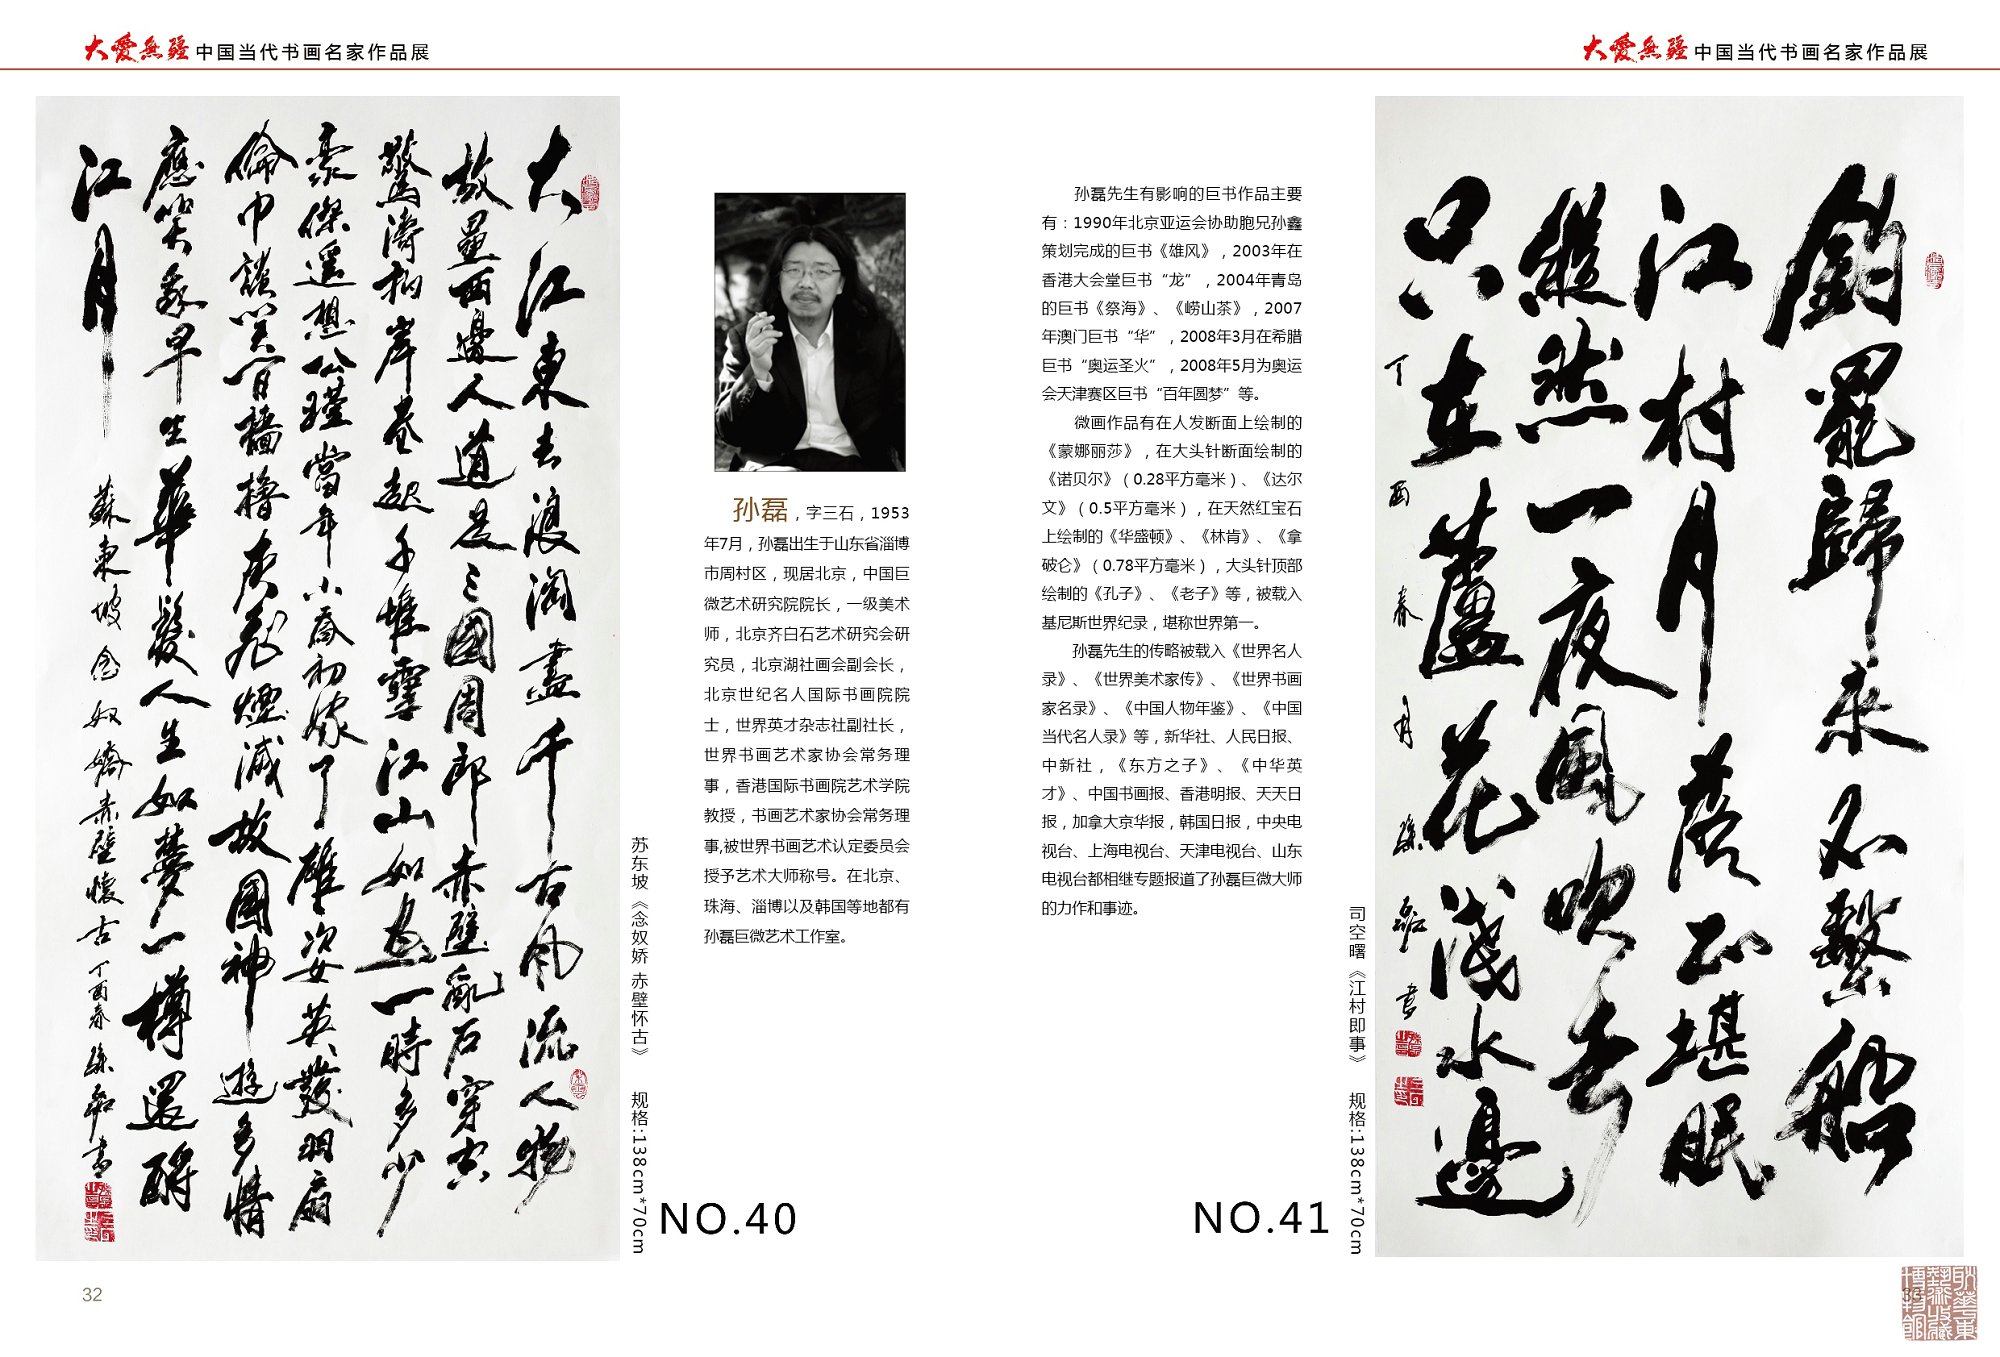 大愛無疆 中国当代书画名家作品展
大江東去浪淘盡千古風流人物
故壘西邊人道是三國周郎赤壁亂石穿空
驚濤拍岸卷起千堆雪江山如畫一時多少
豪傑遙想公瑾當年小喬初嫁了雄姿英發羽扇
綸巾談笑間檣櫓灰飛煙滅故國神遊多情
應笑我早生華髮人生如夢一樽還酹
江月
蘇東坡念奴嬌赤壁懷古丁酉春孫磊書
苏东坡《念奴娇 赤壁怀古》 规格:138cm*70cm
NO.40
孙磊，字三石，1953
年7月，孙磊出生于山东省淄博
市周村区，现居北京，中国巨
微艺术研究院院长，一级美术
师，北京齐白石艺术研究会研
究员，北京湖社画会副会长，
北京世纪名人国际书画院院
士，世界英才杂志社副社长，
世界书画艺术家协会常务理
事，香港国际书画院艺术学院
教授，书画艺术家协会常务理
事,被世界书画艺术认定委员会
授予艺术大师称号。在北京、
珠海、淄博以及韩国等地都有
孙磊巨微艺术工作室。
32
大愛無疆 中国当代书画名家作品展
孙磊先生有影响的巨书作品主要
有：1990年北京亚运会协助胞兄孙鑫
策划完成的巨书《雄风》，2003年在
香港大会堂巨书“龙”，2004年青岛
的巨书《祭海》、《崂山茶》，2007
年澳门巨书“华”，2008年3月在希腊
巨书“奥运圣火”，2008年5月为奥运
会天津赛区巨书“百年圆梦”等。
微画作品有在人发断面上绘制的
《蒙娜丽莎》，在大头针断面绘制的
《诺贝尔》（0.28平方毫米）、《达尔
文》（0.5平方毫米），在天然红宝石
上绘制的《华盛顿》、《林肯》、《拿
破仑》（0.78平方毫米），大头针顶部
绘制的《孔子》、《老子》等，被载入
基尼斯世界纪录，堪称世界第一。
孙磊先生的传略被载入《世界名人
录》、《世界美术家传》、《世界书画
家名录》、《中国人物年鉴》、《中国
当代名人录》等，新华社、人民日报、
中新社，《东方之子》、《中华英
才》、中国书画报、香港明报、天天日
报，加拿大京华报，韩国日报，中央电
视台、上海电视台、天津电视台、山东
电视台都相继专题报道了孙磊巨微大师
的力作和事迹。
NO.41
司空曙《江村即事》 规格:138cm*70cm
釣罷歸來不繫船
江村月落正堪眠
縱然一夜風吹去
只在蘆花淺水邊
丁酉春月孫磊書
33